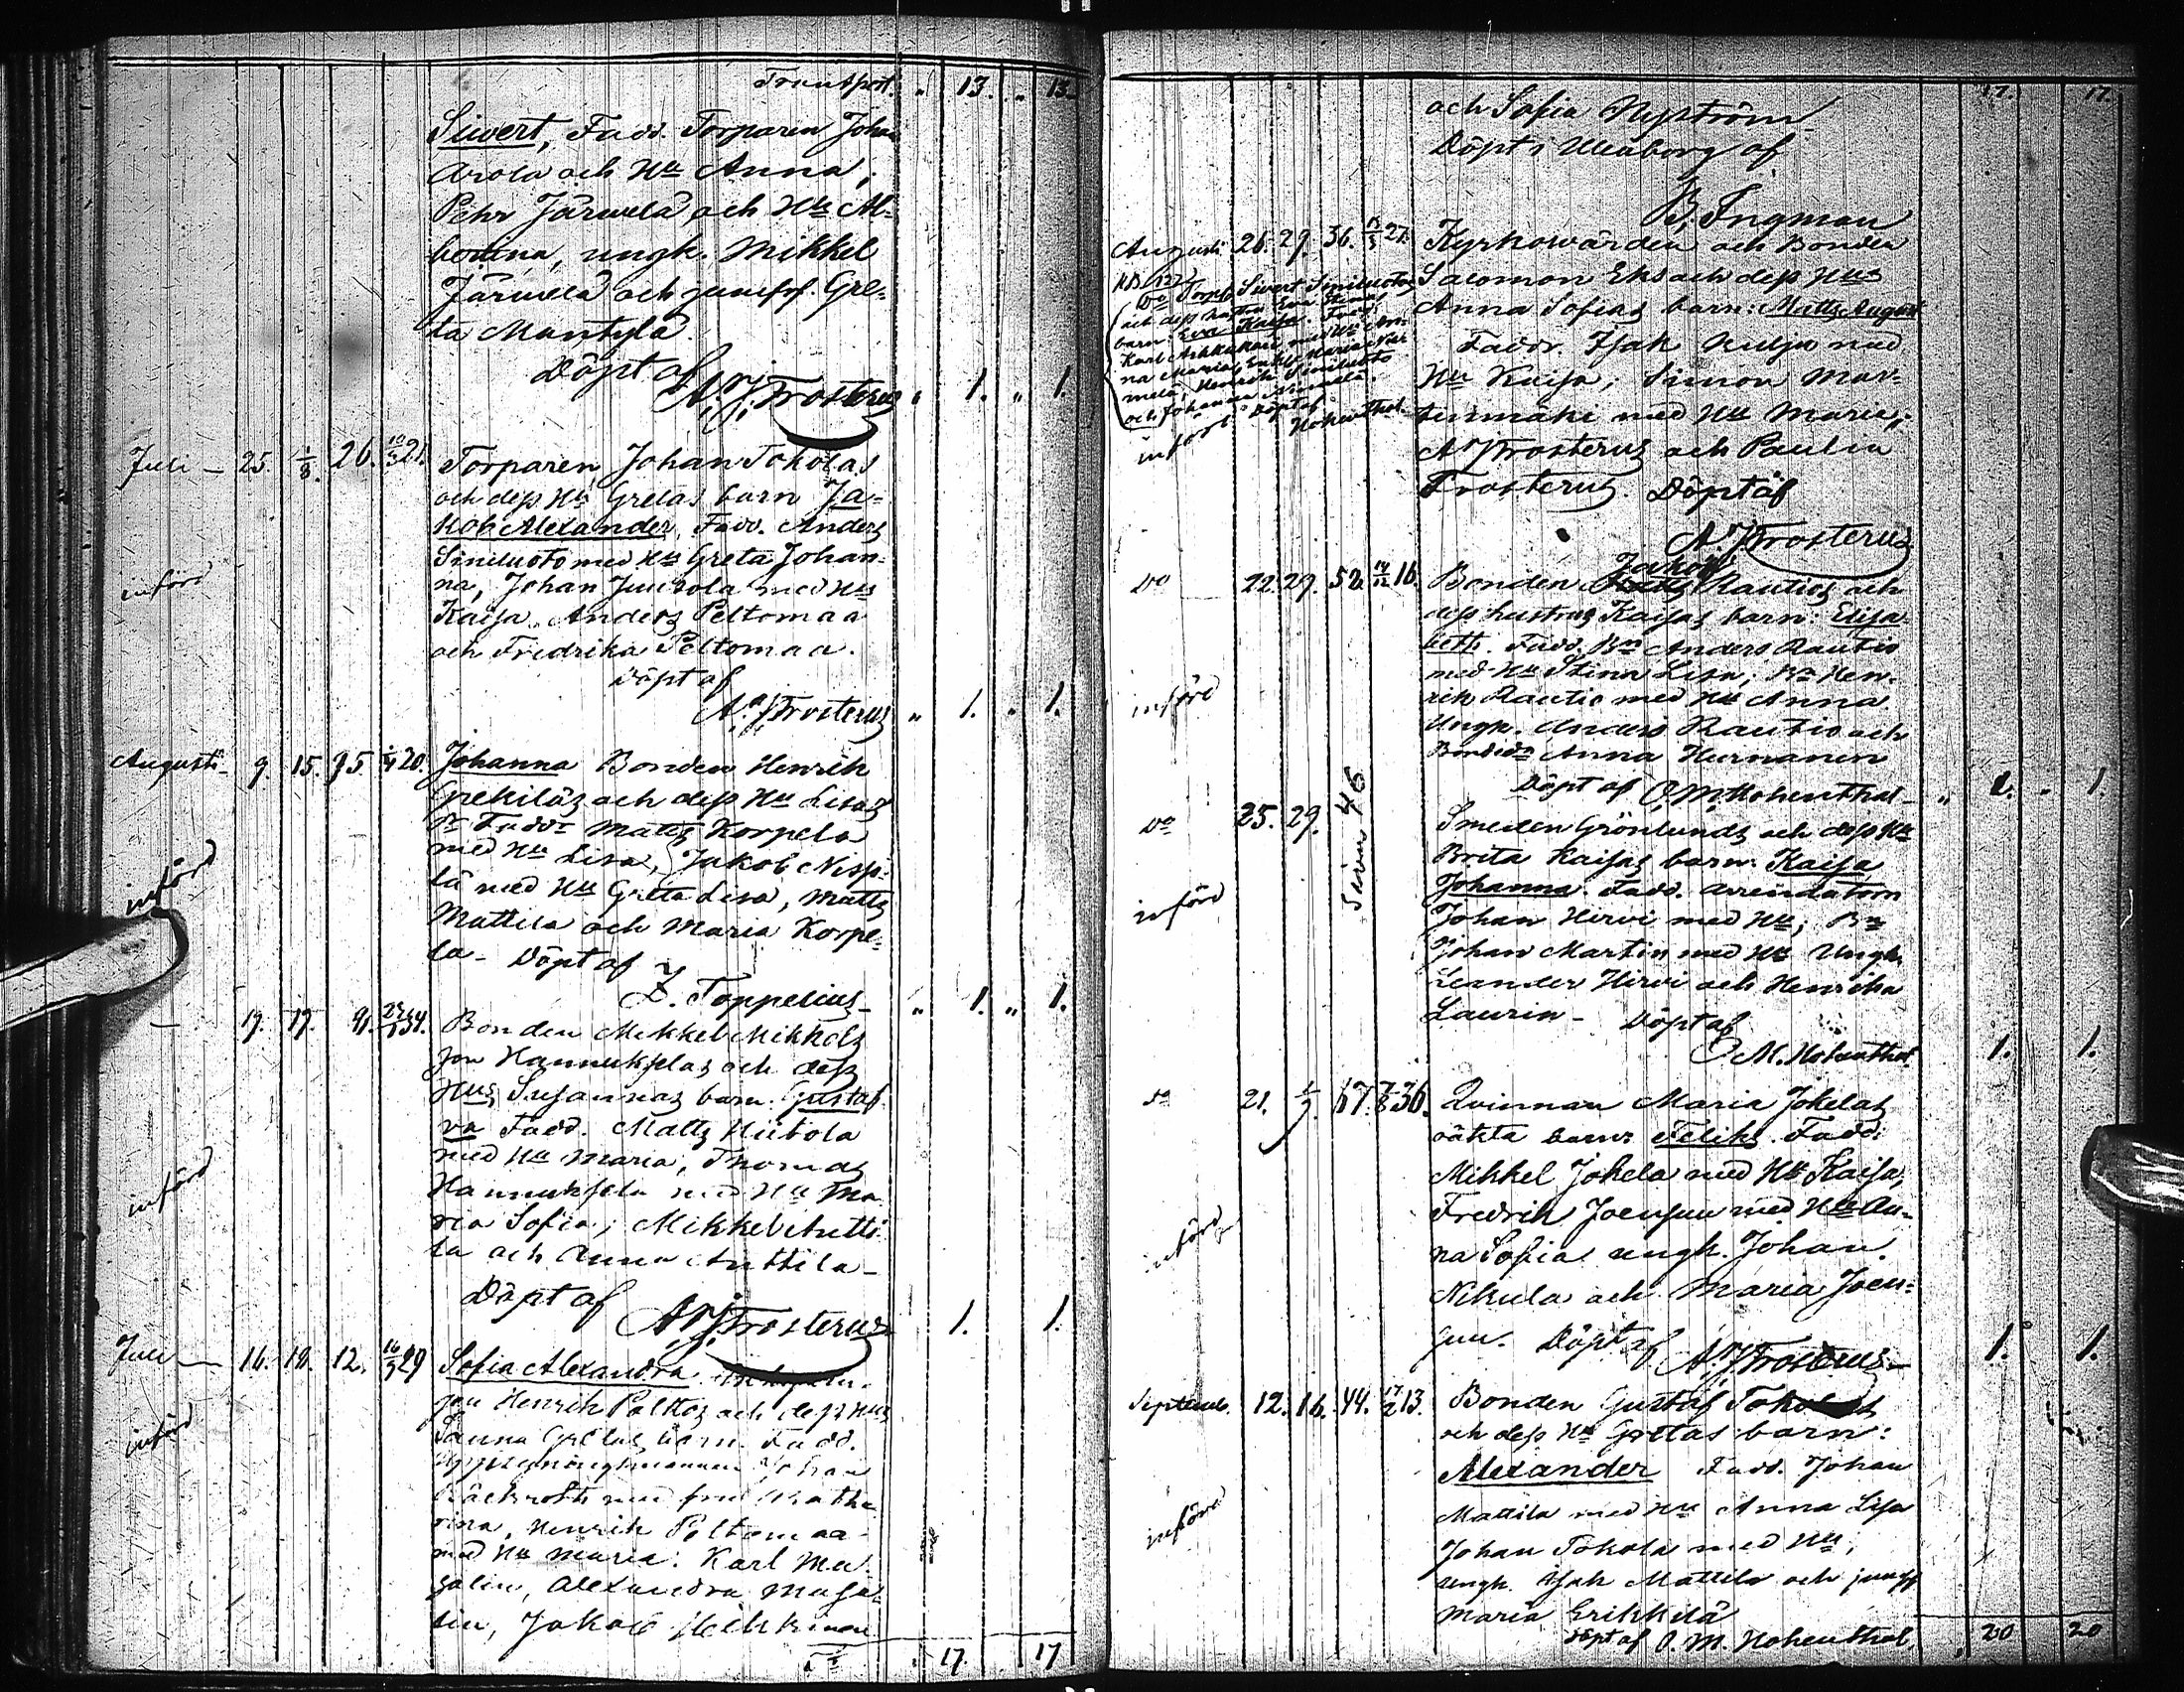 Transport. " 13. " 13.
Siwert, Fadd. Torparen Johan
Arola och Hu Anna,
Pehr Järwelä och Hu Al-
bertina, ungk. Mikkel
Järwelä och jungf. Gre-
ta Mantyla.
Döpt af
A. J. Frosterus " 1. " 1.
Juli - 25. 1/8. 26. 10/3 21. Torparen Johan Tokolas
och dess Hus Gretas barn Ja-
kob Alexander, Fadd. Anders
Siniluoto med Hu Greta Johan-
införd
na, Johan Juusola med Hu
Kaisa. Anders Peltomaa
och Fredrika Peltomaa.
Döpt af
A. J. Frosterus " 1. " 1.
Augusti - 9. 15. 95. 20. Johanna Bonden Henrik
Grekiläs och dess Hu Lisas
Fadd. Matts Korpela
med Hu Lisa, Jakob
införd
lä med Hu Greta Lisa, Matts
Mattila och Maria Korpe-
la - Döpt af
Z. Toppelius - " 1. " 1.
- 17. 17. 91. 34. Bonden Mikkel Mikkels
son Hannukselas och dess
Hus Susannas barn: Gustaf-
va Fadd. Matts Hiitola
med Hu Maria, Thomas
införd
Hannuksela med Hu Ma-
ria Sofia; Mikkel Antti-
la och Anna Anttila -
Döpt af A. J. Frosterus 1. 1.
Juli - 16. 18. 12. 16/3 29 Sofia Alexandra.
son Henrik Palttos och dess Hus
införd
Sanna Gretas barn. Fadd.
Uppsyningsmannen Johan
Bäckroth med fru Katha
rina, Henrik Peltomaa
med Hu Maria: Karl Ma-
galin, Alexandra Maga-
lin, Jakob Heikkinen
17. 17
17. 17.
och Sofia Nyström
Döpt i Uleåborg af
B. Ingman
Augusti 26. 29. 36. 21. Kyrkowärden och Bonden
Salomon Eks och dess Hus
Anna Sofias barn: Matts August
Fadd. Isak Kilju med
Hu Kaisa; Simon Mar-
tinmäki med Hu Maria;
A J Frosterus och Paulin
Frosterus. Döpt af
A. J. Frosterus
NB. 127
Do Torp. Sivert Siniluotos
och dess hustru Eva Stinas
barn: Eva Kaisa. Fadd.
Karl med Hu An-
na Maria; Maria Nie-
melä, Henrik Siniluoto
och Johanna Niemelä.
införd Döpt af
Hohenthal.
Do 22. 29. 52. 14/12 16. Bonden Jakob Rautios och
dess hustrus Kaisas barn: Elisa
beth. Fadd. Bn Anders Rautio
med Hu Stina Lisa; Bn Hen-
införd
rik Rautio med Hu Anna
Ungk. Anders Rautio och
Anna Hermanen
Döpt af O. M. Hohenthal - " 1. " 1.
Do 25. 29. Sievin 46 Smeden Grönlunds och dess Hu
Brita Kaisas barn: Kaisa
införd
Johanna. Fadd. arrendatorn
Johan Hirvi med Hu; Bn
Johan Martin med Hu Ungk.
Leander Hirvi och Henrika
Laurin - Döpt af
O M. Hohenthal. 1. 1.
Do 21. 1/9. 67. 36. Qvinnan Maria Jokelas
oäkta barn: Feliks. Fadd:
Mikkel Jokela med Hu Kaisa,
införd
Fredrik Joensuu med Hu An-
na Sofia ungk. Johan
Nikula och Maria Joen-
suu. Döpt af A. J. Frosterus - 1. 1.
Septemb. 12. 16. 44. 17/2 13. Bonden Gustaf Tokolas
och dess Hu Gretas barn:
Alexander Fadd. Johan
införd
Mattila med Hu Anna Lisa
Johan Tokola med Hu,
ungk. Isak Mattila och jungf
Maria Erikkilä
Döpt af O. M. Hohenthal 20 20